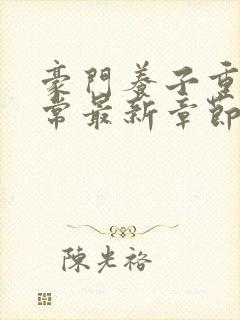 豪門養子重
常最新章節
陳光裕